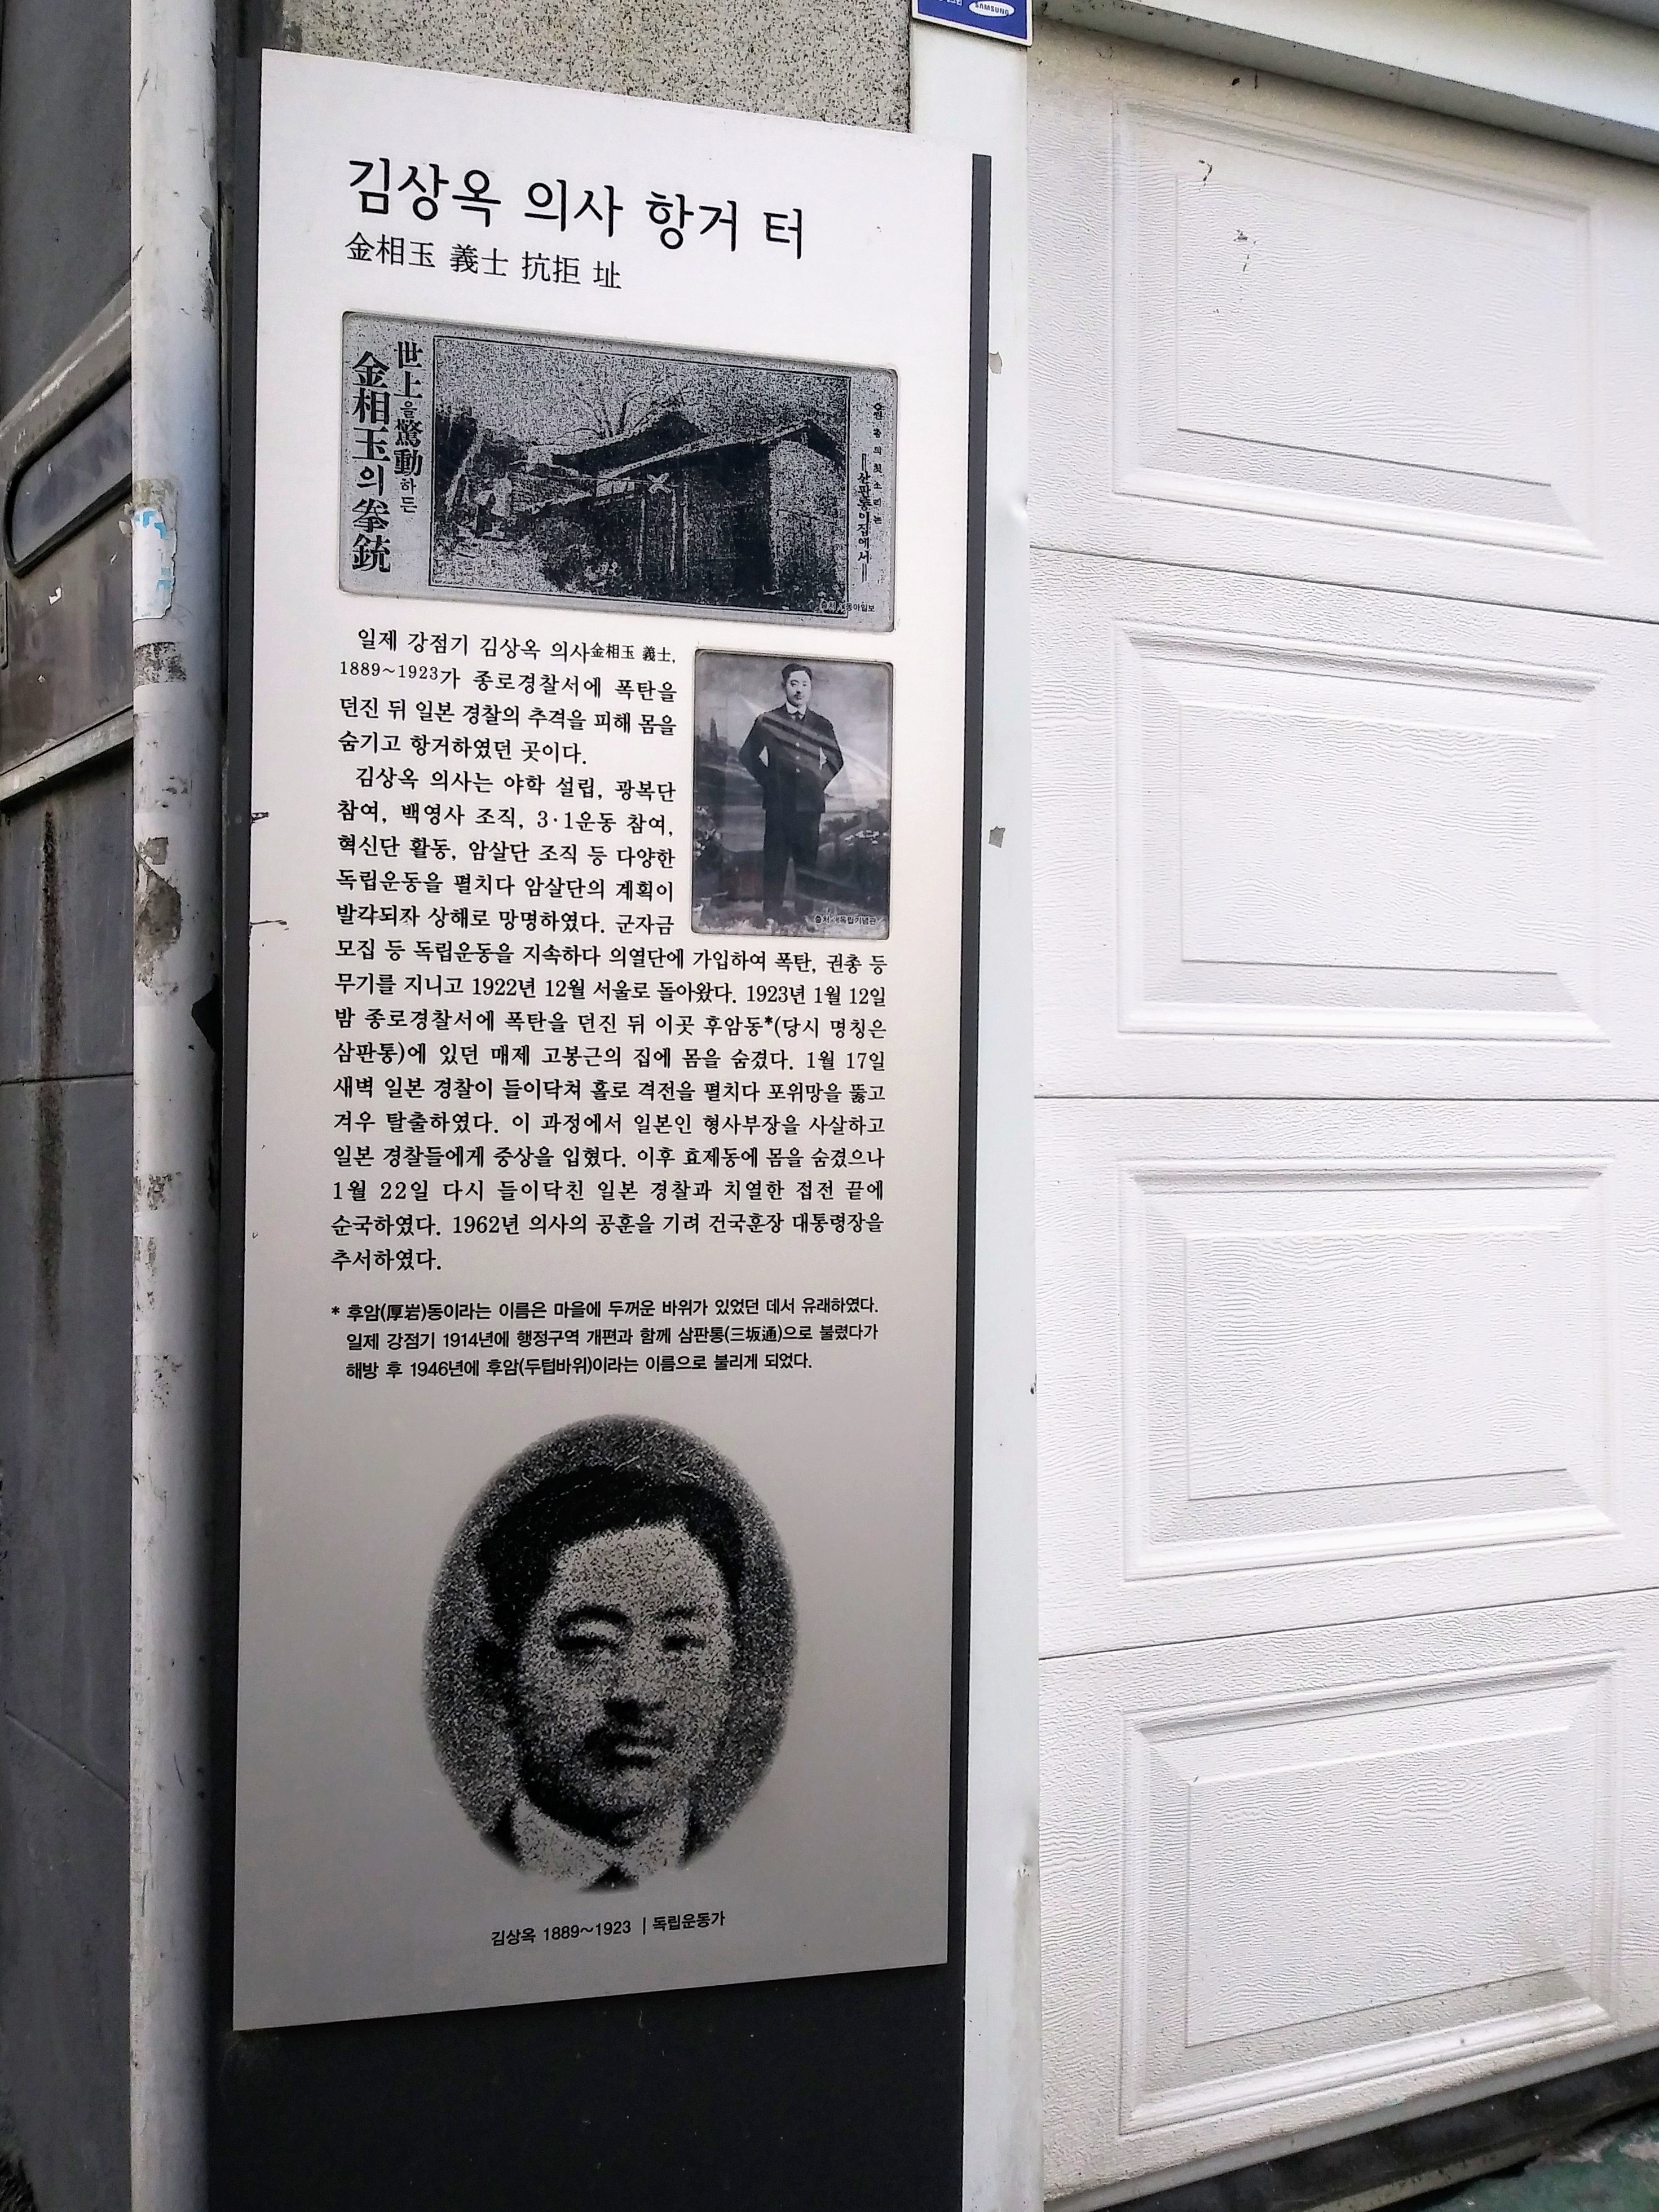 SAMSUNG
김상옥 의사 항거 터
金相玉 義士 抗拒 址
世上을 驚動하든
金相玉의 拳銃
삼판통이집에서
출처 : 동아일보
일제 강점기 김상옥 의사金相玉 義士,
1889~1923가 종로경찰서에 폭탄을
던진 뒤 일본 경찰의 추격을 피해 몸을
숨기고 항거하였던 곳이다.
김상옥 의사는 야학 설립, 광복단
참여, 백영사 조직, 3·1운동 참여,
혁신단 활동, 암살단 조직 등 다양한
독립운동을 펼치다 암살단의 계획이
발각되좌 상해로 망명하였다. 군자금
모집 등 독립운동을 지속하다 의열단에 가입하여 폭탄, 권총 등
무기를 지니고 1922년 12월 서울로 돌아왔다. 1923년 1월 12일
밤 종로경찰서에 폭탄을 던진 뒤 이곳 후암동*(당시 명칭은
삼판통)에 있던 매제 고봉근의 집에 몸을 숨겼다. 1월 17일
새벽 일본 경찰이 들이닥쳐 홀로 격전을 펼치다 포위망을 뚫고
겨우 탈출하였다. 이 과정에서 일본인 형사부장을 사살하고
일본 경찰들에게 중상을 입혔다. 이후 효제동에 몸을 숨겼으나
1월 22일 다시 들이닥친 일본 경찰과 치열한 접전 끝에
순국하였다. 1962년 의사의 공훈을 기려 건국훈장 대통령장을
추서하였다.
출처 : 독립기념관
* 후암(厚岩)동이라는 이름은 마을에 두꺼운 바위가 있었던 데서 유래하였다.
일제 강점기 1914년에 행정구역 개편과 함께 삼판통(三坂通)으로 불렸다가
해방 후 1946년에 후암(두텁바위)이라는 이름으로 불리게 되었다.
김상옥 1889~1923 | 독립운동가